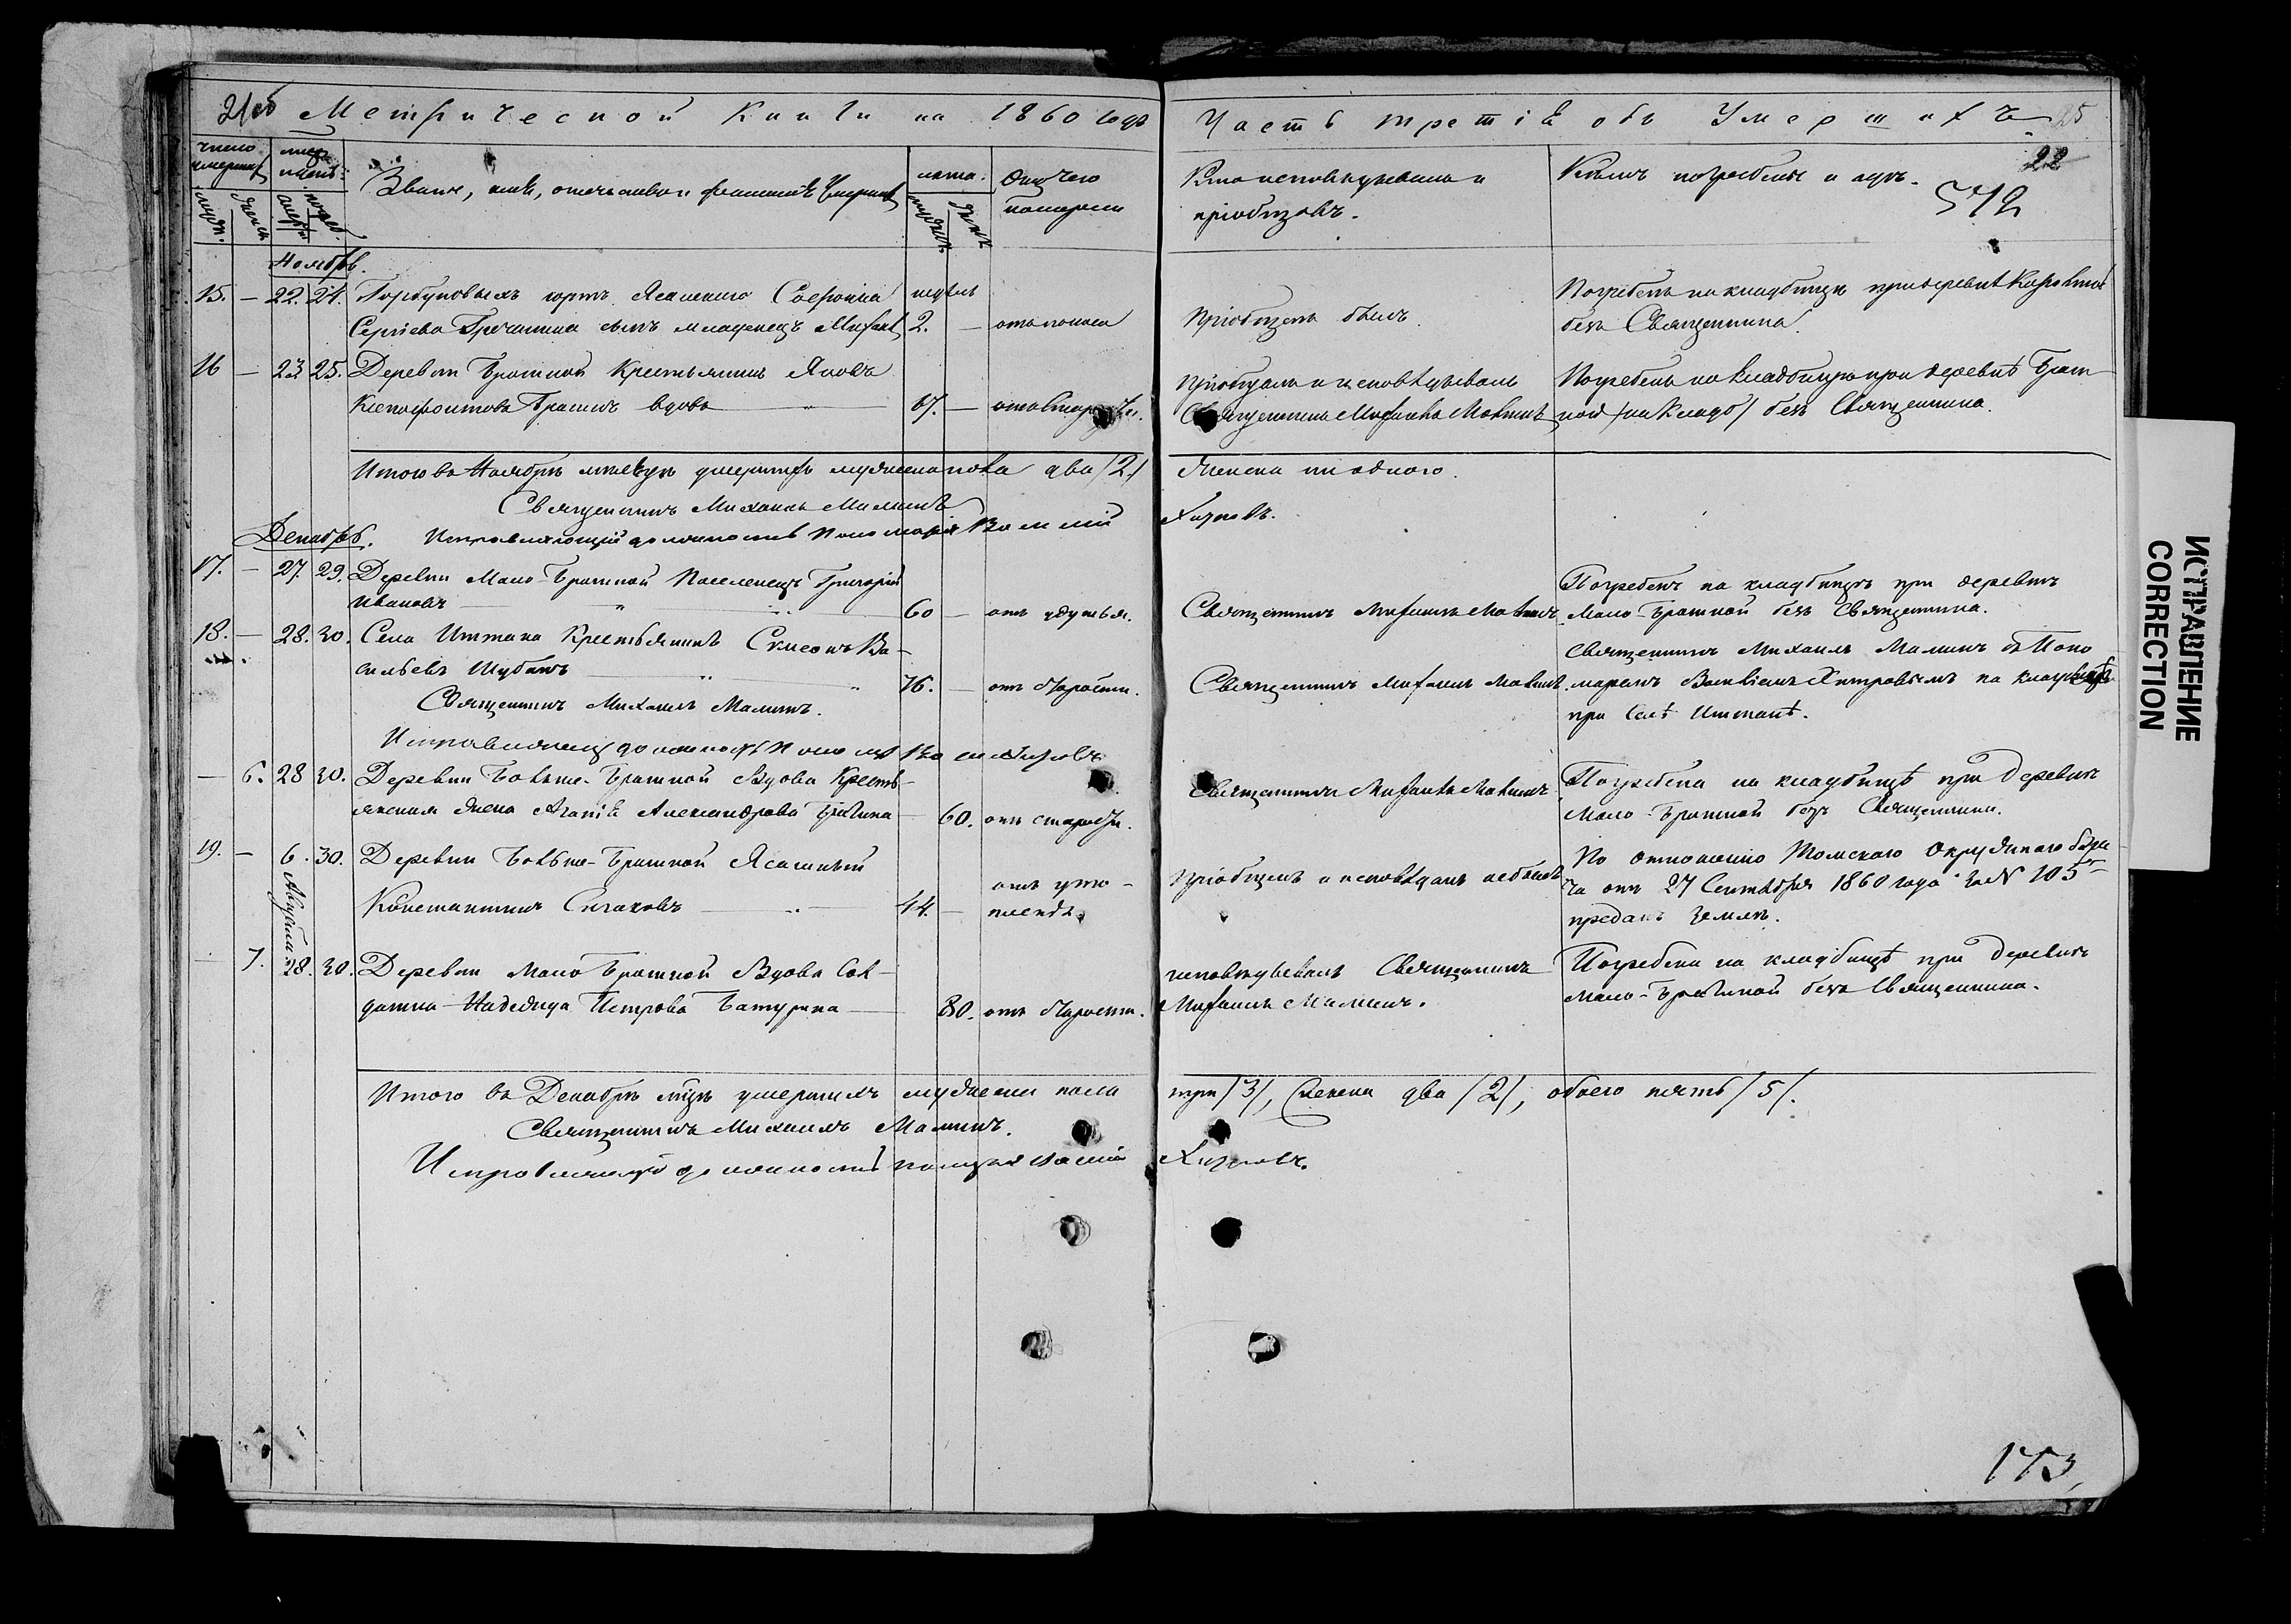 Метрической Книги на 1860 годъ
Часть третія объ Умершихъ 25
22
572
число умершихъ
мѣсяцъ
Званіе, имя, отечество и фамилія Умершихъ
лѣта.
Отъ чего померли
Кто исповѣдывалъ и пріобщалъ.
Кѣмъ погребены и гдѣ.
мужск.
женск.
смерти
погреб.
Ноябрь.
15. — 22. 24. юртъ Ясашнаго Софонiя недѣль
Погребенъ на кладбищѣ при деревнѣ
Сергіева сынъ младенецъ 2. — отъ поноса
Пріобщенъ былъ.
безъ Священника.
16 — 23. 25. Деревни Братской Крестьянинъ Яковъ
Ксенофонтовъ вдовъ 67. — отъ старости.
Пріобщалъ и исповѣдывалъ
Священникъ Михаилъ Малинъ
Погребенъ на кладбищѣ при деревнѣ Брат-
ской безъ Священника.
Итого въ Ноябрѣ мѣсяцѣ умершихъ мужеска пола два /2/
женска ни одного.
Священникъ Михаилъ Малинъ
Исправляющій должность Пономаря Василій
Хитровъ.
Декабрь.
17. — 27. 29. Деревни Мало-Братской Поселенецъ Григорій
Ивановъ — 60 — отъ удушья.
Священникъ Михаилъ Малинъ.
Погребенъ на кладбищѣ при деревнѣ
Мало-Братской безъ Священника.
18. — 28. 30. Села Иштана Крестьянинъ Симеонъ Ва-
сильевъ Шубинъ 76. — отъ старости.
Священникъ Михаилъ Малинъ.
Священникъ Михаилъ Малинъ съ Поно-
маремъ Василіемъ Хитровымъ на кладбищѣ
при Селѣ Иштанѣ.
Священникъ Михаилъ Малинъ.
Исправляющій должность
— 6. 28 30. Деревни Больше-Братской Вдова Кресть-
янская жена Агапія Александрова — 60. отъ старости.
Священникъ Михаилъ Малинъ
Погребена на кладбищѣ при деревнѣ
Мало-Братской безъ Священника.
19. — 6. 30. Деревни Больше-Братской Ясашный
Константинъ — 44. —
отъ уто-
пленія
Пріобщенъ и исповѣданъ не былъ
По отношенію Томскаго Окружнаго Вра-
ча отъ 27 Сентября 1860 года за № 105
преданъ землѣ.
— 7. 28. 30. Деревни Мало Братской Вдова Сол-
датка Надежда Петрова Батурина — 80. отъ старости.
исповѣдывалъ Священникъ
Михаилъ Малинъ.
Погребена на кладбищѣ при деревнѣ
Мало-Братской безъ Священника.
Итого въ Декабрѣ мѣсяцѣ умершихъ мужеска пола
три /3/, женска два /2/, обоего пять /5/.
Священникъ Михаилъ Малинъ.
Исправляющій должность пономаря Василій
Хитровъ.
173
ИСПРАВЛЕНИЕ
CORRECTION